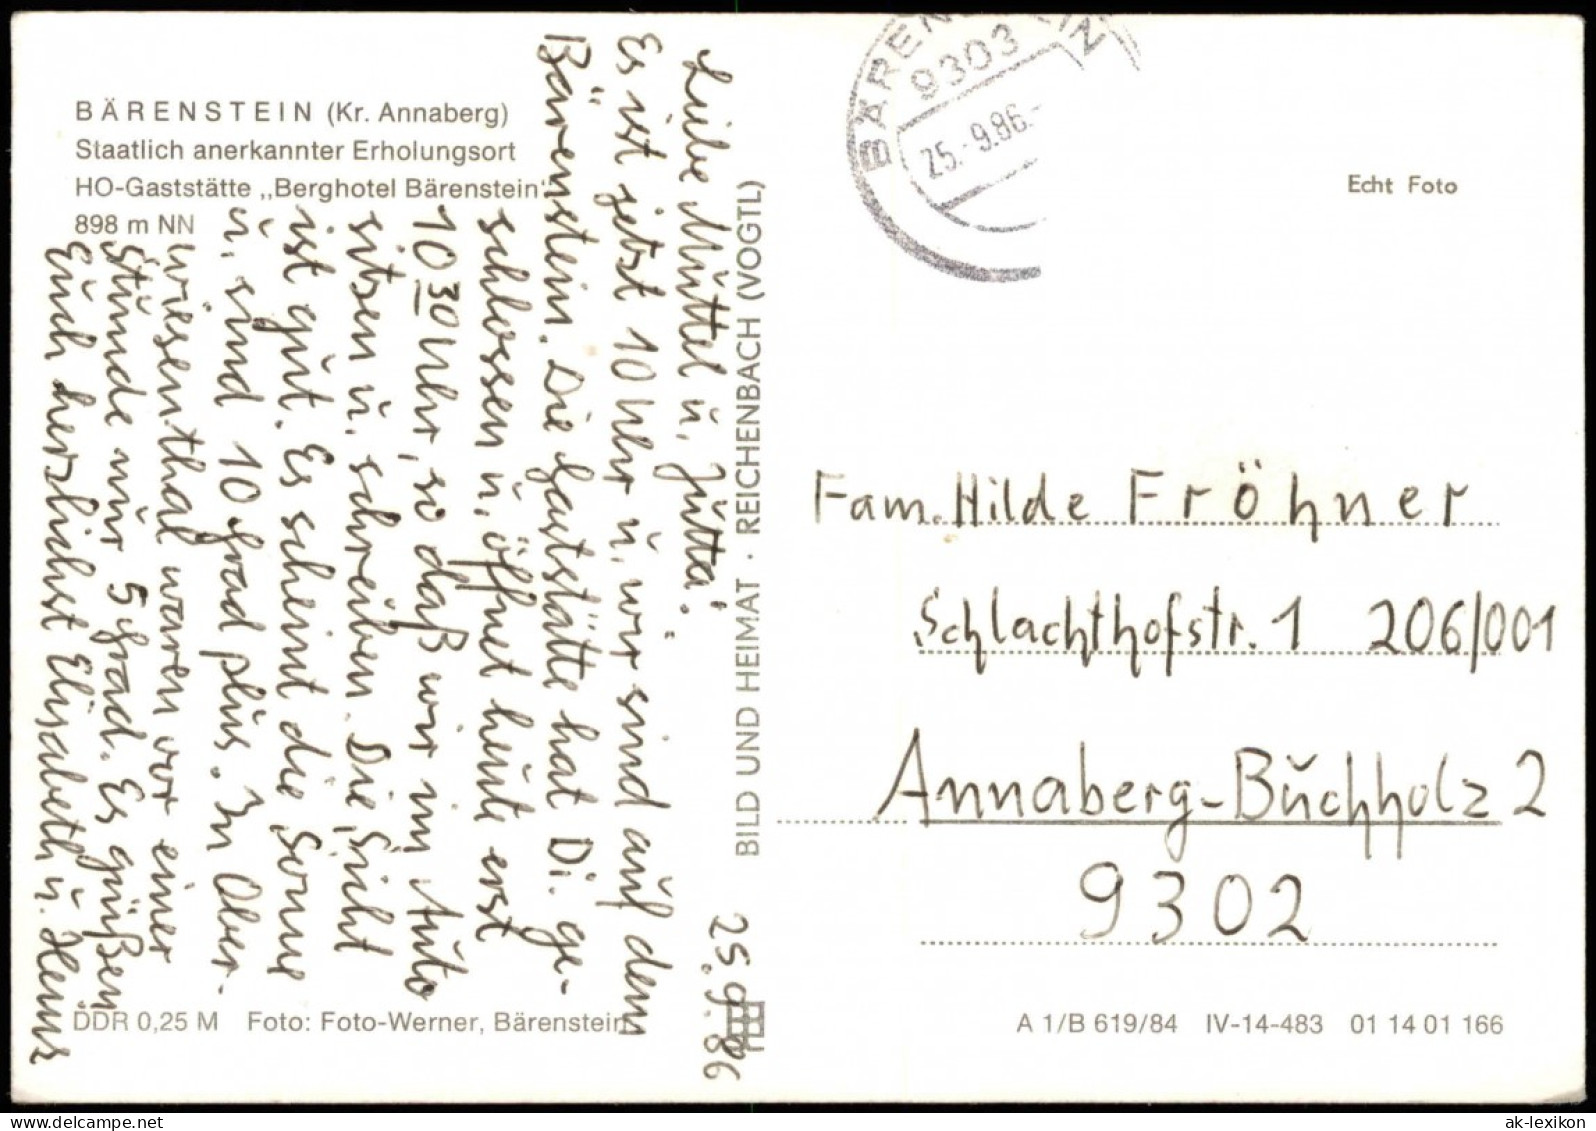 BÄRENSTEIN (Kr. Annaberg)
Staatlich anerkannter Erholungsort
HO-Gaststätte „Berghotel Bärenstein“
898 m NN
Liebe Muttel u. Jutta!
Es ist jetzt 10 Uhr u. wir sind auf dem
Bärenstein. Die Gaststätte hat Di. ge-
schlossen u. öffnet heute erst
10 30 Uhr, so daß wir im Auto
sitzen u. schreiben. Die Sicht
ist gut. Es scheint die Sonne
u. sind 10 Grad plus. In Ober-
wiesenthal waren vor einer
Stunde nur 5 Grad. Es grüßen
Euch herzlichst Elisabeth u. Heinz
25.9.86
BILD UND HEIMAT · REICHENBACH (VOGTL)
DDR 0,25 M Foto: Foto-Werner, Bärenstein
BÄRENSTEIN
9303
25.-9.86.-
Echt Foto
Fam. Hilde Fröhner
Schlachthofstr. 1 206/001
Annaberg-Buchholz 2
9302
A 1/B 619/84 IV-14-483 01 14 01 166
ak-lexikon.de